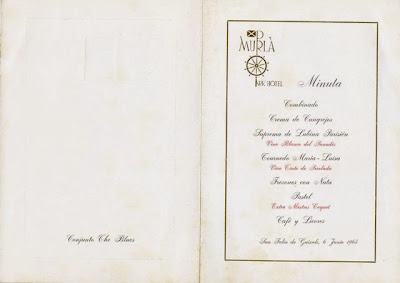 Conjunto The Blues
MURLÀ
PARK HOTEL
Minuta
Combinado
Crema de Cangrejos
Suprema de Lubina Parisién
Vino Blanco del Penedés
Tournedo María-Luisa
Vino Tinto de Perelada
Fresones con Nata
Pastel
Extra Mestres Coquet
Café y Licores
San Feliu de Guixols, 6 Junio 1965